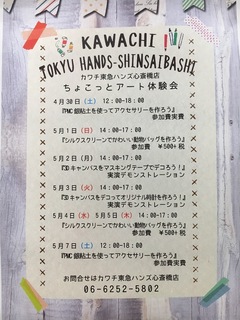 KAWACHI
TOKYU HANDS-SHINSAIBASHI
カワチ東急ハンズ心斎橋店
ちょこっとアート体験会
4月30日(土) 12:00-18:00
『PMC銀粘土を使ってアクセサリーを作ろう』
参加費実費
5月1日(日) 14:00-17:00
『シルクスクリーンでかわいい動物バッグを作ろう!』
参加費 ¥500+税
5月2日(月) 14:00-17:00
『CDキャンバスをマスキングテープでデコろう!』
実演デモンストレーション
5月3日(火) 14:00-17:00
『CDキャンバスをデコってオリジナル時計を作ろう!』
実演デモンストレーション
5月4日(水) 5月5日(木) 14:00-17:00
『シルクスクリーンでかわいい動物バッグを作ろう!』
参加費 ¥500+税
5月7日(土) 12:00-18:00
『PMC 銀粘土を使ってアクセサリーを作ろう』
参加費実費
お問合せはカワチ東急ハンズ心斎橋店
06-6252-5802